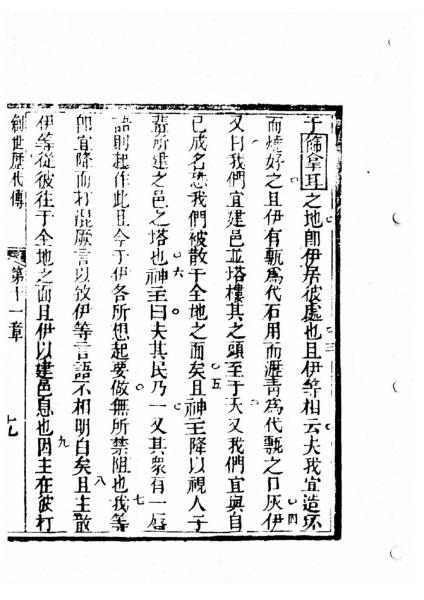 于篩拿耳之地即伊居彼處也且伊等相云夫我宜造坯
三
而燒好之且伊有甎為代石用而瀝青為代甎之口灰伊
四
又曰我們宜建邑並塔樓其之頭至于天又我們宜與自
己成名恐我們被散于全地之面矣且神主降以視人子
五
輩所建之邑之塔也神主曰夫其民乃一又其眾有一唇
六
語則起作此且今于伊各所想起要做無所禁阻也我等
七
即宜降而打混厥言以致伊等言語不相明白矣且主散
八
伊等從彼往于全地之面且伊以建邑息也因主在彼打
九
創世歷代傳 第十一章